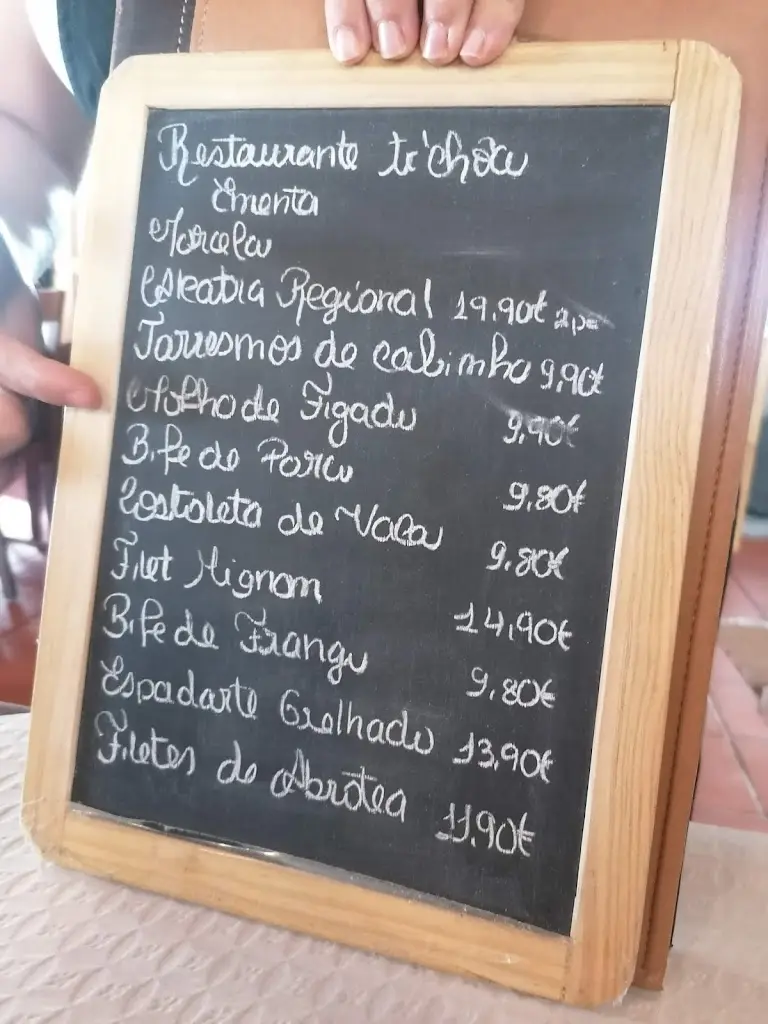 Restaurante ti'choa
Ementa
Morcela
Alcatra Regional 19.90€ 2 p
Torresmos de cabinho 9,90€
Molho de Figado 9,90€
Bife de Porco 9,80€
Costoleta de Vaca 9,80€
Filet Mignom 14,90€
Bife de Frango 9,80€
Espadarte Grelhado 13,90€
Filetes de Abrótea 11,90€